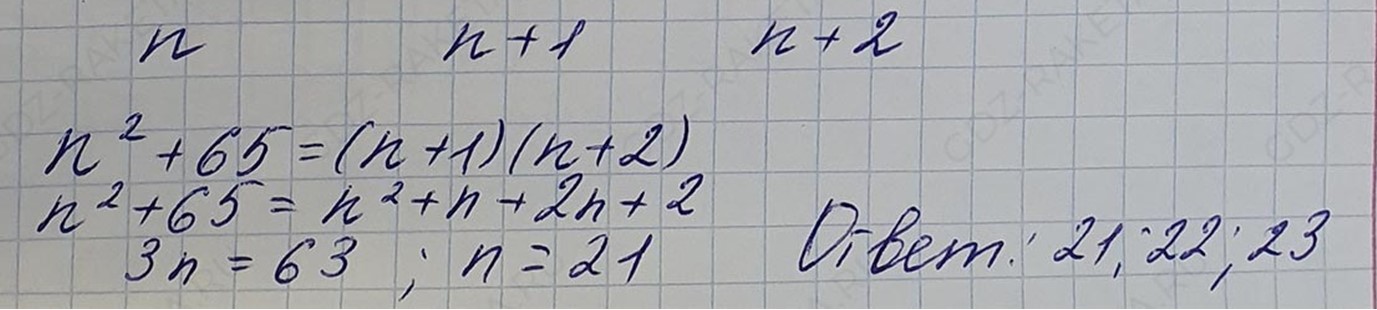 n n+1 n+2
n² + 65 = (n+1)(n+2)
n² + 65 = n² + n + 2n + 2
3n = 63 ; n = 21 Ответ: 21; 22; 23